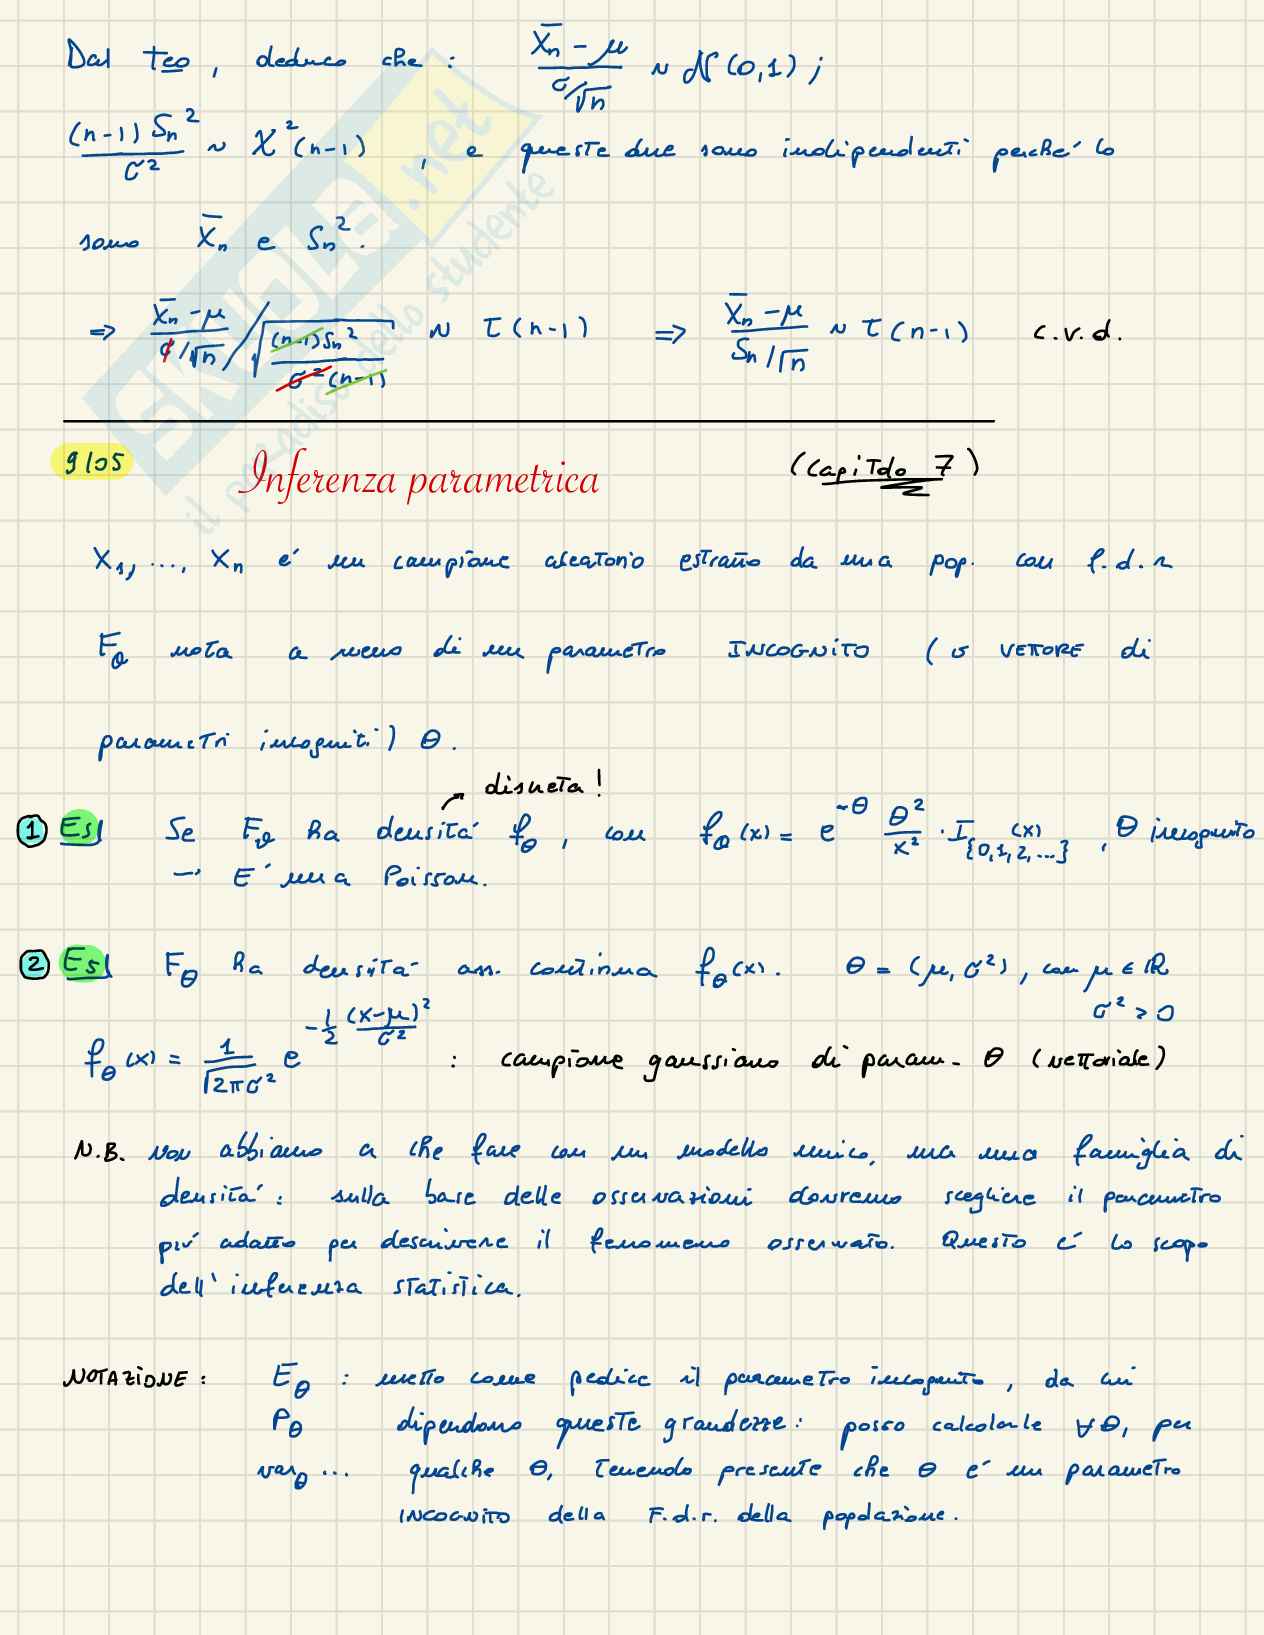 Dal teo, deduco che: (X̄n - μ)/(σ/√n) ~ N(0,1);
(n-1)Sn²/σ² ~ χ²(n-1), e queste due sono indipendenti perché lo
sono X̄n e Sn².
=> (X̄n - μ)/(σ/√n) / √((n-1)Sn²/(σ²(n-1))) ~ τ(n-1) => (X̄n - μ)/(Sn/√n) ~ τ(n-1) c.v.d.
9/05 Inferenza parametrica (Capitolo 7)
X₁, ..., Xn é un campione aleatorio estratto da una pop. con f.d.r
Fθ nota a meno di un parametro INCOGNITO (o VETTORE di
parametri incogniti) θ.
discreta!
① Es Se Fθ ha densitá fθ, con fθ(x) = e^(-θ) θ²/x² · I{0,1,2,...}(x), θ incognito
→ É una Poisson.
② Es Fθ ha densitá ass. continua fθ(x). θ = (μ, σ²), con μ ∈ ℝ
σ² > 0
fθ(x) = 1/√(2πσ²) e^(-1/2 (x-μ)²/σ²) : campione gaussiano di param. θ (vettoriale)
N.B. non abbiamo a che fare con un modello unico, ma una famiglia di
densitá: sulla base delle osservazioni dovremo scegliere il parametro
piú adatto per descrivere il fenomeno osservato. Questo é lo scopo
dell'inferenza statistica.
NOTAZIONE: Eθ : metto come pedice il parametro incognito, da cui
Pθ dipendono queste grandezze: posso calcolarle ∀θ, per
varθ ... qualche θ, tenendo presente che θ é un parametro
INCOGNITO della F.d.r. della popolazione.
SKUOLA.net
il paradiso dello studente